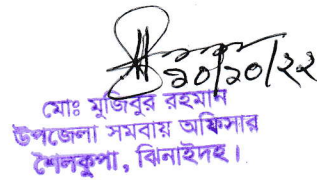 ২০/১০/২২
মোঃ মুজিবুর রহমান
উপজেলা সমবায় অফিসার
শৈলকুপা, ঝিনাইদহ।